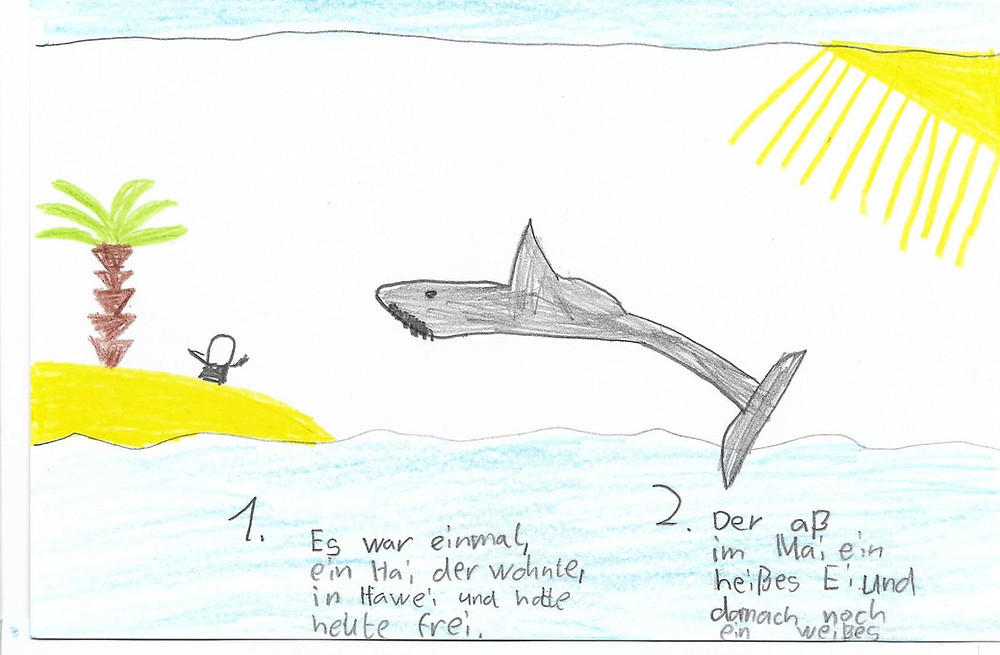 1.
Es war einmal,
ein Hai der wohnte,
in Hawei und hatte
heute frei.
2.
Der aß
im Mai ein
heißes Ei und
damach noch
ein weißes